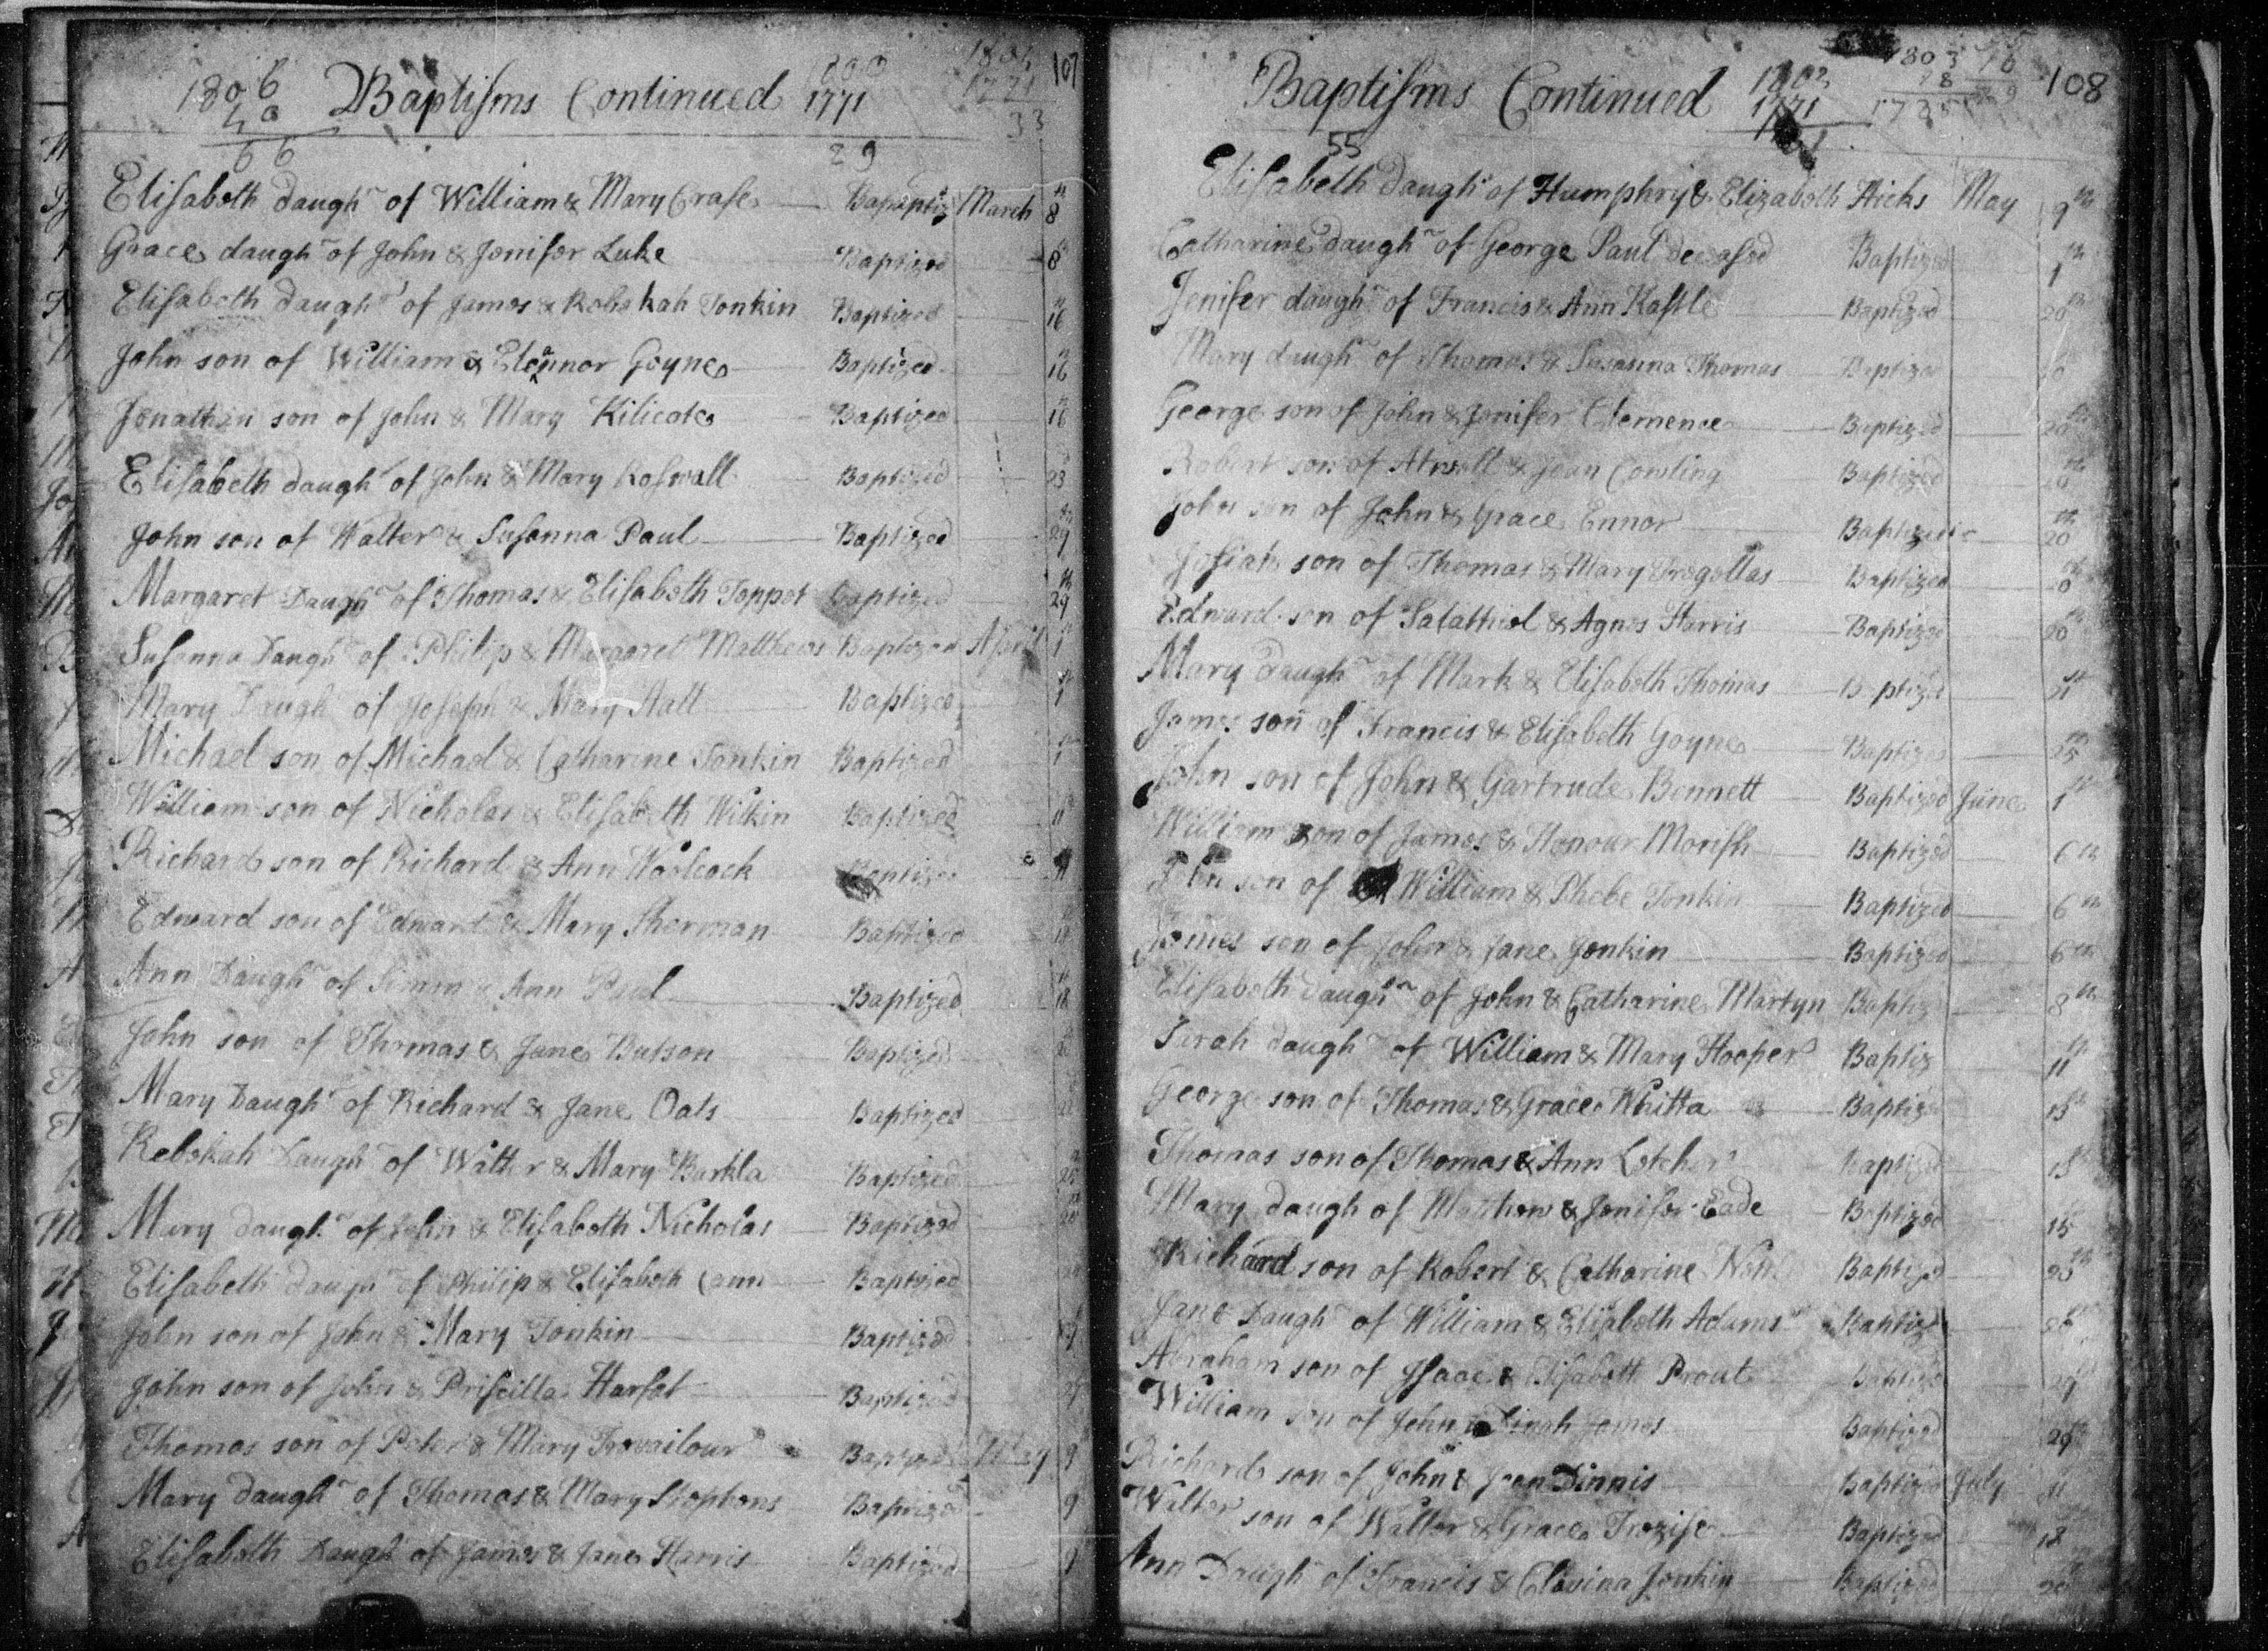 1806 Baptisms Continued 1771 107
40
66 29 33
Elisabeth daughr of William & Mary Crase Bapaptiz March 8
Grace daughr of John & Jenifer Luke Baptized 8
Elisabeth daughr of James & Rebekah Tonkin Baptized 16
John son of William & Eleannor Goyne Baptized 16
Jonathan son of John & Mary Kilicote Baptized 16
Elisabeth daughr of John & Mary Roswall Baptized 23
John son of Walter & Susanna Paul Baptized 29
Margaret Daughr of Thomas & Elisabeth Teppet Baptized 29
Susanna Daughr of Philip & Margaret Matthews Baptized April 1
Mary Daughr of Joseph & Mary Hall Baptized 1
Michael son of Michael & Catharine Tonkin Baptized 1
William son of Nicholas & Elisabeth Wilkin Baptized 11
Richard son of Richard & Ann Woolcock Baptized 11
Edward son of Edward & Mary Sherman Baptized
Ann Daughr of Simm & Ann Paul Baptized 18
John son of Thomas & Jane Butson Baptized
Mary Daughr of Richard & Jane Oats Baptized
Rebekah Daughr of Walter & Mary Barkla Baptized 25
Mary daughr of John & Elisabeth Nicholas Baptized
Elisabeth daughr of Philip & Elisabeth Cann Baptized
John son of John & Mary Tonkin Baptized
John son of John & Priscilla Harfot Baptized
Thomas son of Peter & Mary Trevailour Baptized May 9
Mary daughr of Thomas & Mary Stephens Baptized 9
Elisabeth Daughr of James & Jane Harris Baptized 9
Baptisms Continued 1802 1803 108
1771
55
Elisabeth daughr of Humphry & Elizabeth Hicks May 9th
Catharine daughr of George Paul deceased Baptized
Jenifer daughr of Francis & Ann Kastle Baptized 20th
Mary daughr of Thomas & Susanna Thomas Baptized 20
George son of John & Jenifer Clemence Baptized 20th
Robert son of Atwell & Jean Cowling Baptized 20th
John son of John & Grace Ennor Baptized 20th
Josiah son of Thomas & Mary Tregellas Baptized 20th
Edward son of Salathiel & Agnes Harris Baptized 20th
Mary daughr of Mark & Elisabeth Thomas Baptized 21st
James son of Francis & Elisabeth Goyne Baptized 25th
John son of John & Gartrude Bennett Baptized June 1st
William son of James & Honour Morish Baptized 6th
John son of William & Phebe Tonkin Baptized 6th
James son of John & Jane Jenkin Baptized 6th
Elisabeth daughr of John & Catharine Martyn Baptiz 8th
Sarah daughr of William & Mary Hooper Baptiz 11th
George son of Thomas & Grace Whitta Baptiz 15th
Thomas son of Thomas & Ann Letcher Baptized 15th
Mary daugh of Matthew & Jenifer Eade Baptized 15
Richard son of Robert & Catharine Baptized 26th
Jane Daughr of William & Elisabeth Adams Baptized 26
Abraham son of Isaac & Elisabeth Prout Baptized 29
William son of John & Dinah James Baptized 29
Richard son of John & Jean Dinnis Baptized July 11
Walter son of Walter & Grace Trezise Baptized 18
Ann Daughr of Francis & Jenkin Baptized